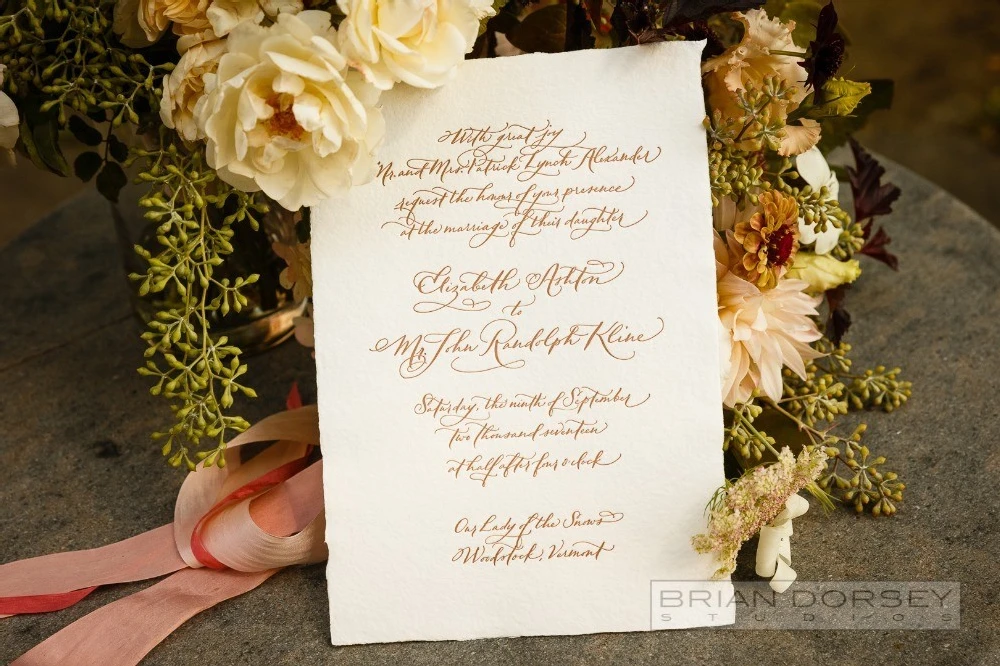 With great joy
Mr. and Mrs. Patrick Lynch Alexander
request the honor of your presence
at the marriage of their daughter
Elizabeth Ashton
to
Mr. John Randolph Kline
Saturday, the ninth of September
two thousand seventeen
at half after four o'clock
Our Lady of the Snows
Woodstock, Vermont
BRIAN DORSEY
STUDIOS